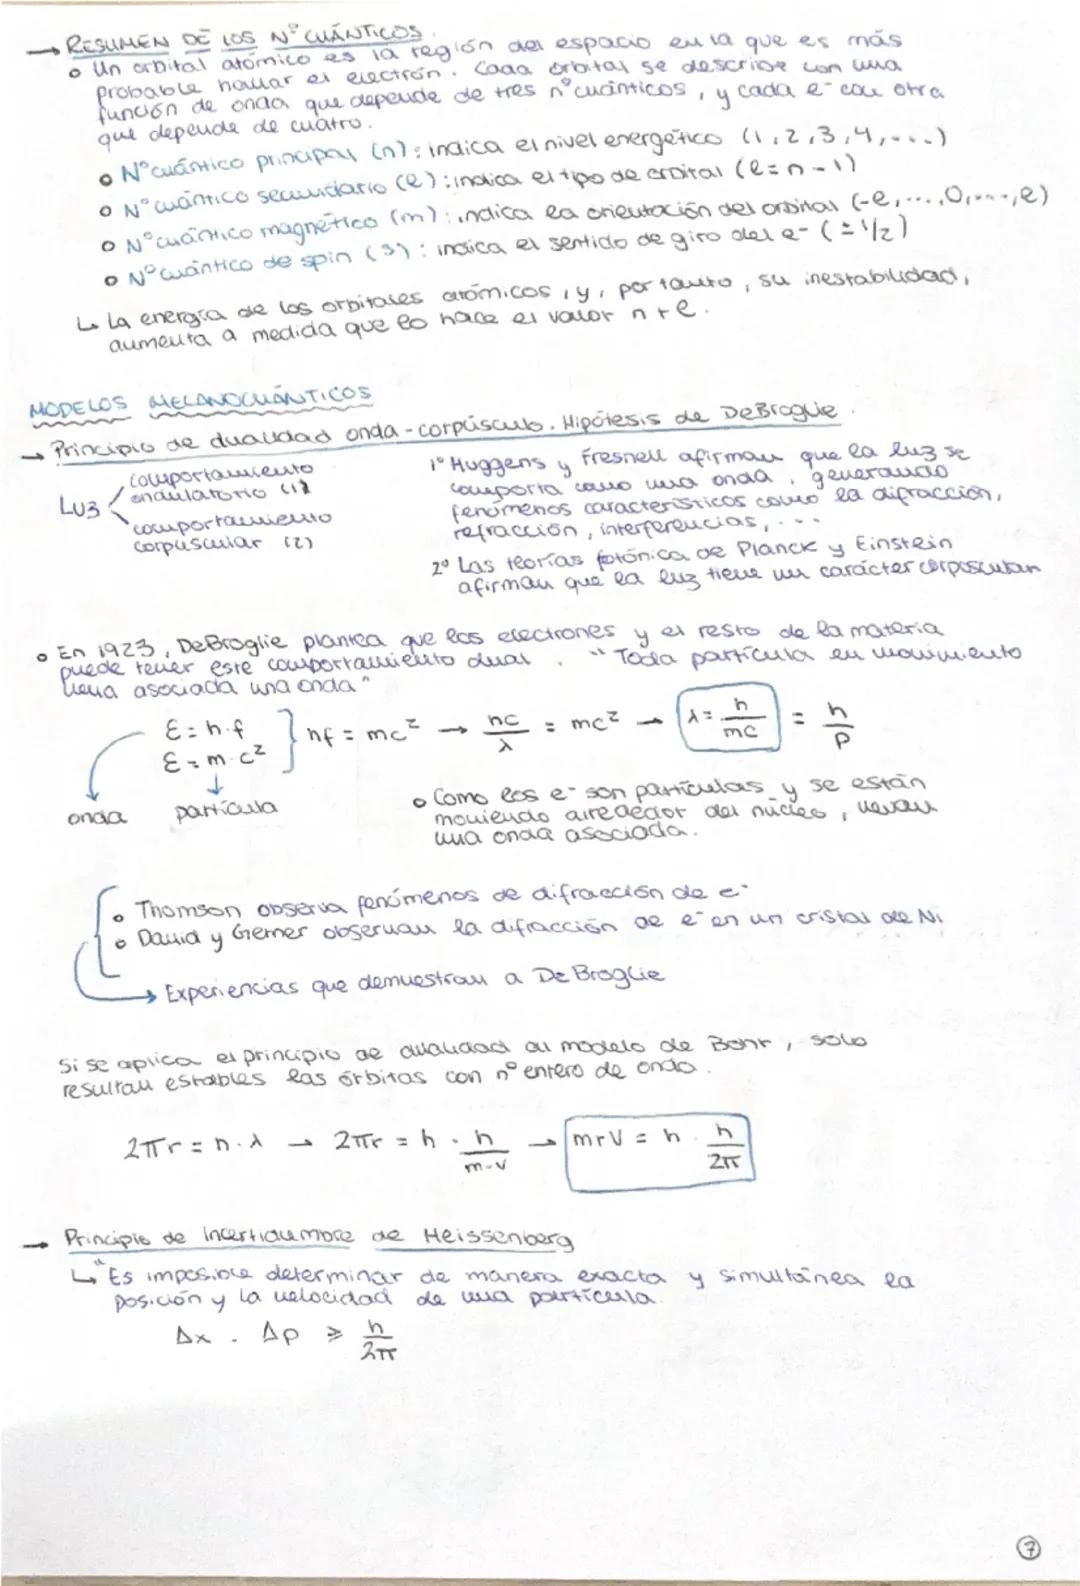 → RESUMEN DE LOS Nº CUÁNTICOS.
∘ Un orbital atómico es la región del espacio en la que es más
probable hallar el electrón. Cada orbital se describe con una
función de onda que depende de tres nº cuánticos, y cada e⁻ con otra
que depende de cuatro.
∘ Nº cuántico principal (n): indica el nivel energético (1, 2, 3, 4, ...)
∘ Nº cuántico secundario (ℓ): indica el tipo de orbital (ℓ = n - 1)
∘ Nº cuántico magnético (m): indica la orientación del orbital (-ℓ, ..., 0, ..., ℓ)
∘ Nº cuántico de spin (s): indica el sentido de giro del e⁻ (± 1/2)
↳ La energía de los orbitales atómicos, y, por tanto, su inestabilidad,
aumenta a medida que lo hace el valor n + ℓ.
MODELOS MECANOCUÁNTICOS
→ Principio de dualidad onda-corpúsculo. Hipótesis de DeBroglie.
Luz
comportamiento
ondulatorio (1)
comportamiento
corpuscular (2)
1º Huggens y Fresnell afirman que la luz se
comporta como una onda, generando
fenómenos característicos como la difracción,
refracción, interferencias, ...
2º Las teorías fotónica de Planck y Einstein
afirman que la luz tiene un carácter corpuscular
∘ En 1923, DeBroglie plantea que los electrones y el resto de la materia
puede tener este comportamiento dual. "Toda partícula en movimiento
lleva asociada una onda"
E = h · f
E = m · c²
} hf = mc² → hc/λ = mc² → λ = h/mc = h/p
onda partícula
∘ Como los e⁻ son partículas y se están
moviendo alrededor del núcleo, llevan
una onda asociada.
∘ Thomson observa fenómenos de difracción de e⁻
∘ David y Gerner observan la difracción de e⁻ en un cristal de Ni
→ Experiencias que demuestran a De Broglie
Si se aplica el principio de dualidad al modelo de Bohr, solo
resultan estables las órbitas con nº entero de onda.
2πr = n · λ → 2πr = h · h/m·v → mrV = h · h/2π
→ Principio de Incertidumbre de Heissenberg
↳ "Es imposible determinar de manera exacta y simultánea la
posición y la velocidad de una partícula.
Δx · Δp ≥ h/2π
7